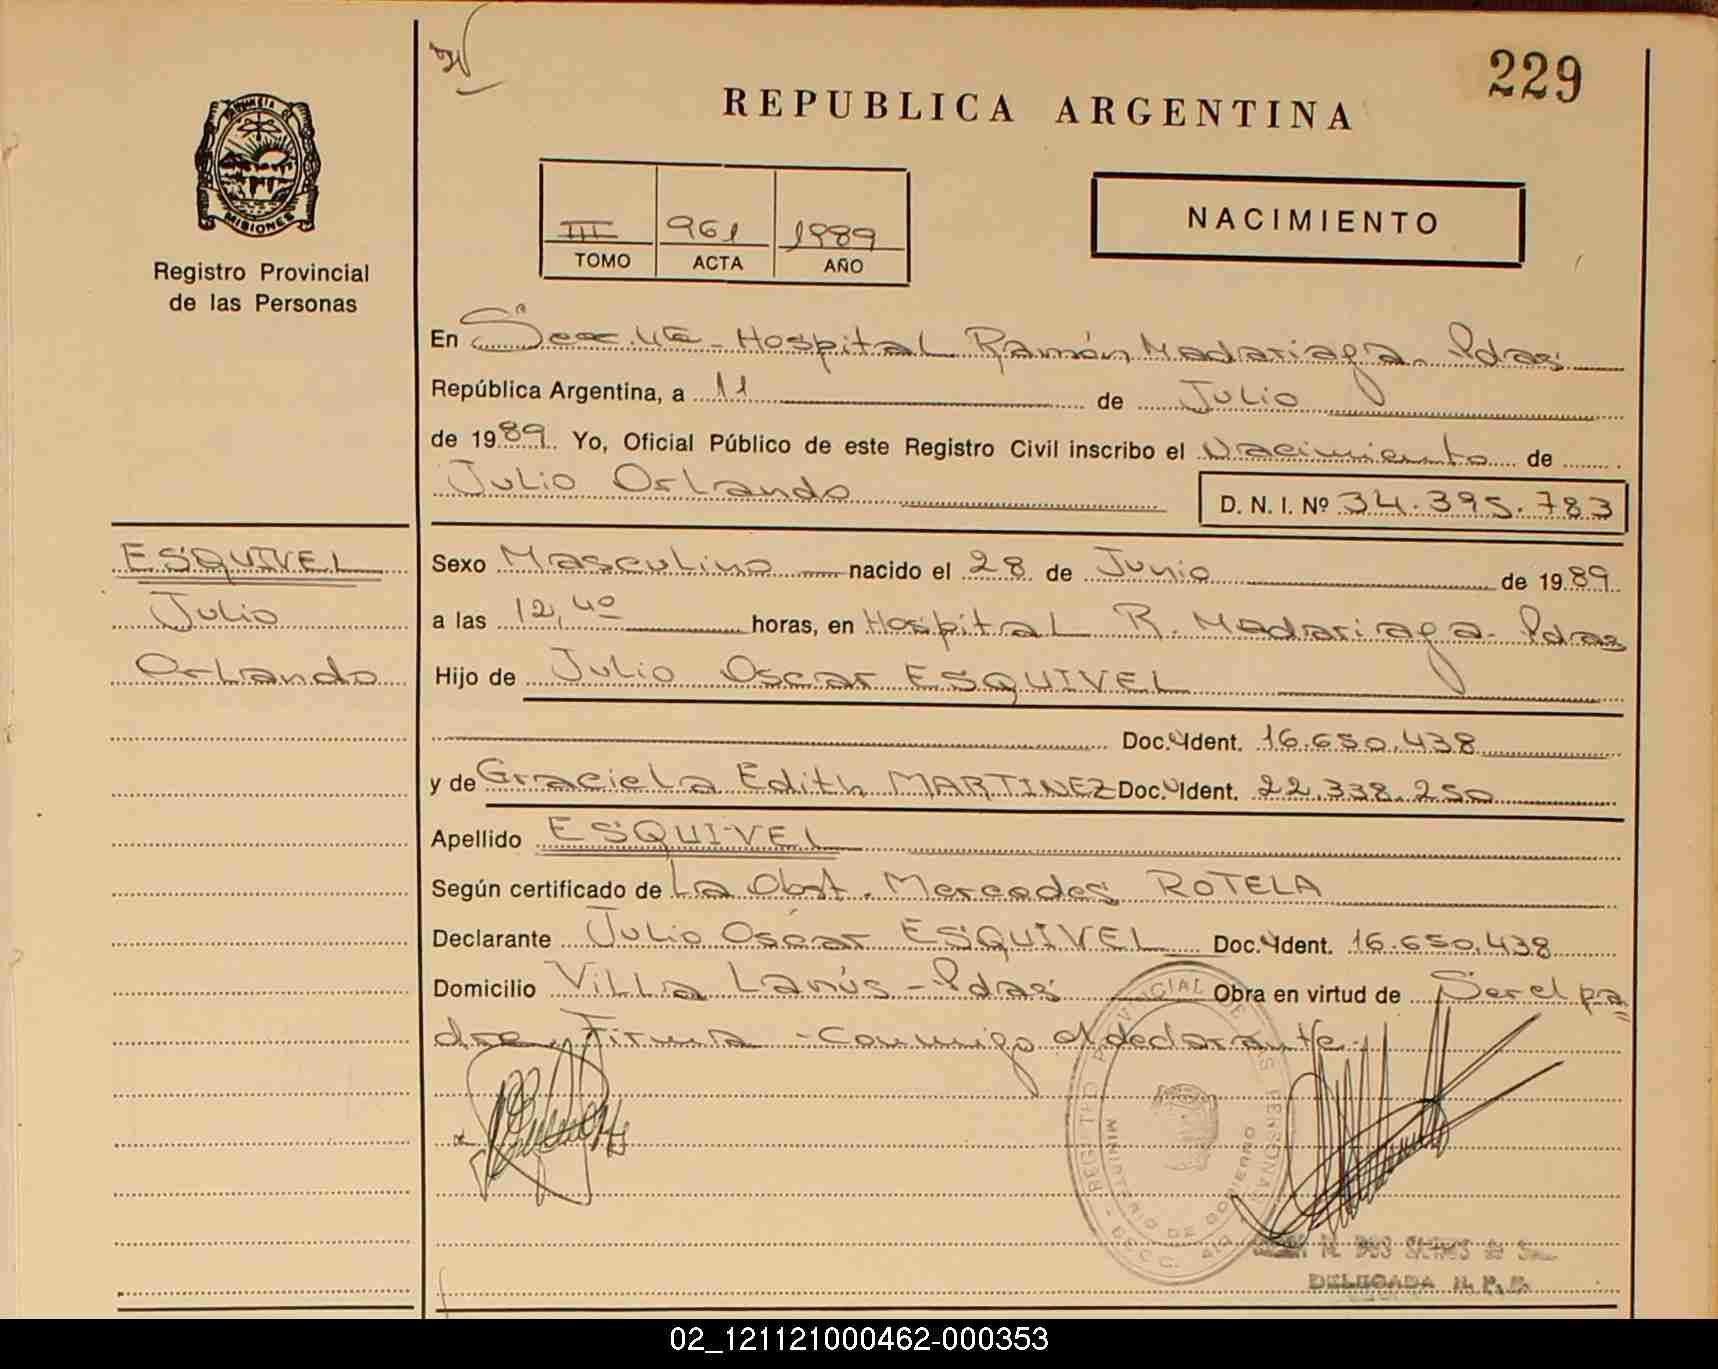 229
REPUBLICA ARGENTINA
PROVINCIA DE
MISIONES
Registro Provincial
de las Personas
III 961 1989
TOMO ACTA AÑO
NACIMIENTO
En Secc. 4ta - Hospital Ramón Madariaga - Pdas
República Argentina, a 11 de Julio
de 1989. Yo, Oficial Público de este Registro Civil inscribo el Nacimiento de
Julio Orlando D. N. I. Nº 34.395.783
ESQUIVEL
Julio
Orlando
Sexo Masculino nacido el 28 de Junio de 1989
a las 12,40 horas, en Hospital R. Madariaga - Pdas
Hijo de Julio Oscar ESQUIVEL
Doc. Ident. 16.650.438
y de Graciela Edith MARTINEZ Doc. Ident. 22.338.250
Apellido ESQUIVEL
Según certificado de La Obst. Mercedes ROTELA
Declarante Julio Oscar ESQUIVEL Doc. Ident. 16.650.438
Domicilio Villa Lanús - Pdas Obra en virtud de Ser el pa=
dre. Firma - Conmigo el declarante.
REGISTRO PROVINCIAL DE LAS PERSONAS
MINISTERIO DE GOBIERNO
DELEGADA R. P. P.
02_121121000462-000353